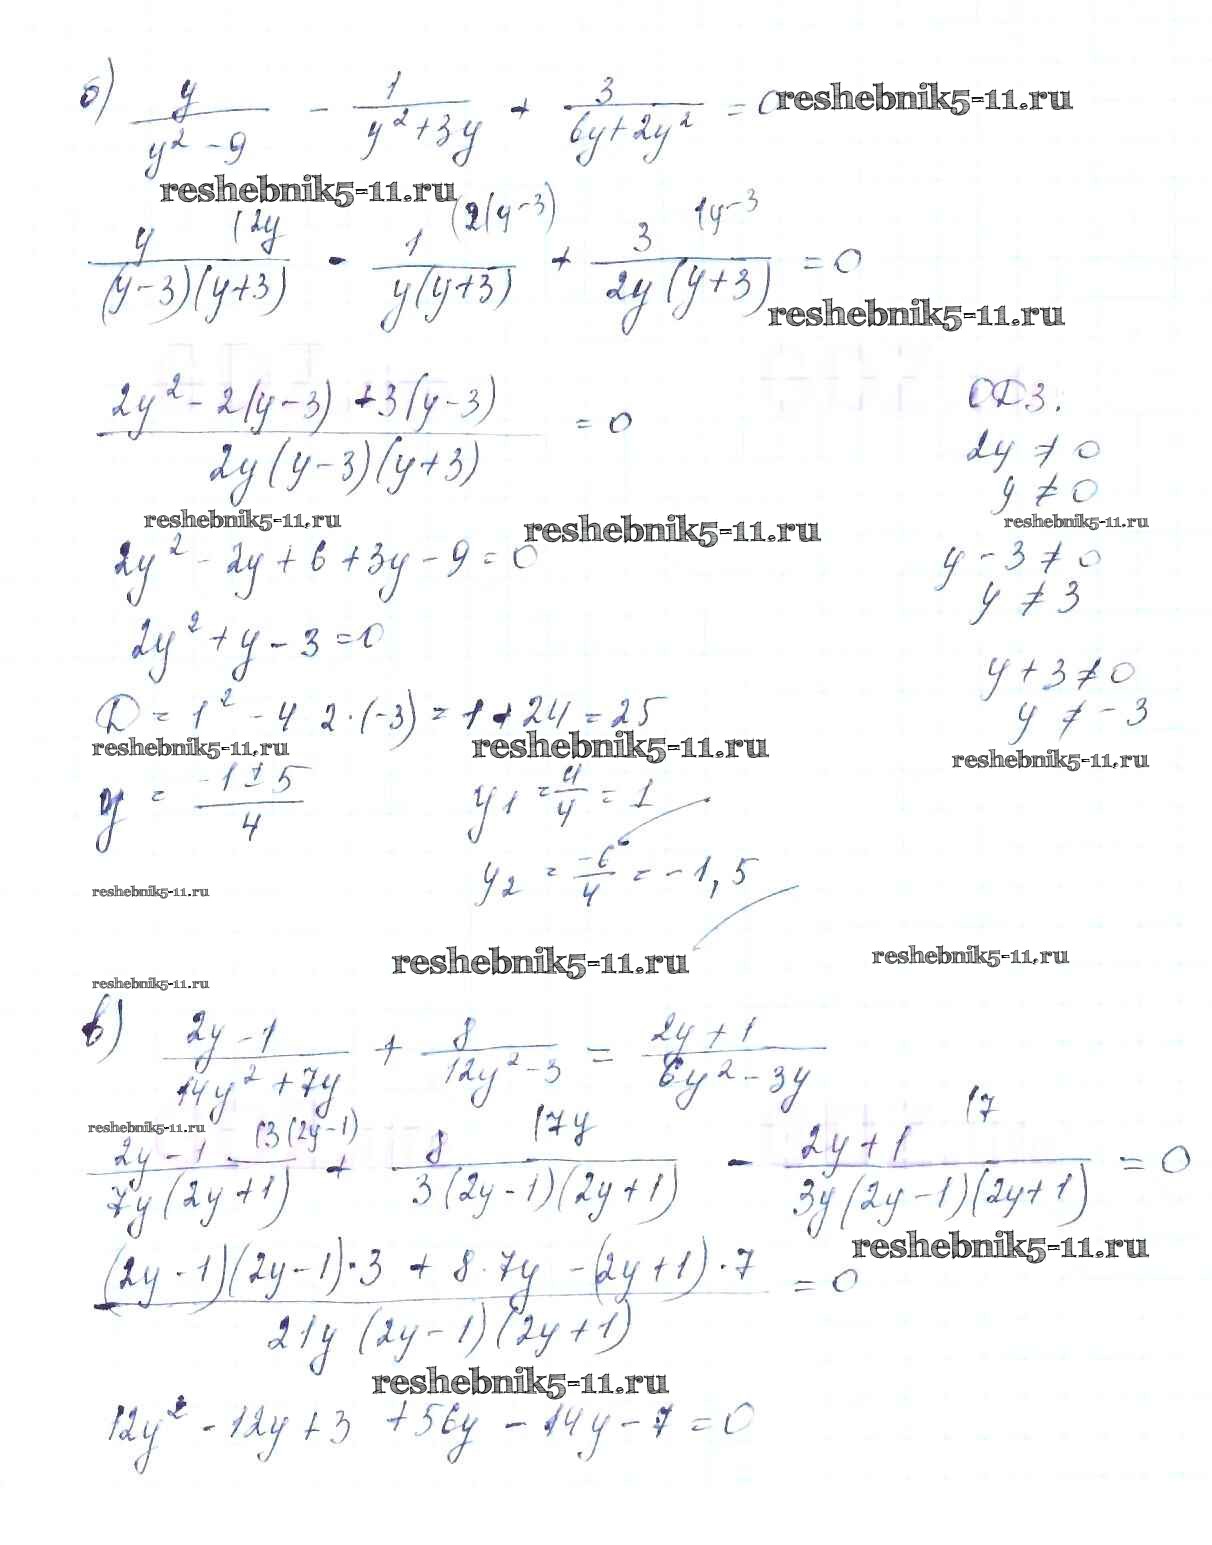 б) y/(y² - 9) - 1/(y² + 3y) + 3/(6y + 2y²) = 0 reshebnik5-11.ru
reshebnik5-11.ru
y (2y / (y - 3)(y + 3) - 1 (2(y - 3) / y(y + 3) + 3 (y - 3 / 2y(y + 3) = 0
reshebnik5-11.ru
(2y² - 2(y - 3) + 3(y - 3)) / (2y(y - 3)(y + 3)) = 0
ОДЗ:
2y ≠ 0
y ≠ 0
reshebnik5-11.ru reshebnik5-11.ru reshebnik5-11.ru
2y² - 2y + 6 + 3y - 9 = 0
y - 3 ≠ 0
y ≠ 3
2y² + y - 3 = 0
y + 3 ≠ 0
y ≠ -3
D = 1² - 4 2 · (-3) = 1 + 24 = 25
reshebnik5-11.ru reshebnik5-11.ru reshebnik5-11.ru
y = (-1 ± 5)/4 y1 = 4/4 = 1
y2 = -6/4 = -1,5
reshebnik5-11.ru
reshebnik5-11.ru reshebnik5-11.ru
reshebnik5-11.ru
в) (2y - 1)/(14y² + 7y) + 8/(12y² - 3) = (2y + 1)/(6y² - 3y)
reshebnik5-11.ru
2y - 1 (3(2y - 1) / 7y(2y + 1) + 8 (7y / 3(2y - 1)(2y + 1) - 2y + 1 (7 / 3y(2y - 1)(2y + 1) = 0
reshebnik5-11.ru
((2y - 1)(2y - 1) · 3 + 8 · 7y - (2y + 1) · 7) / (21y (2y - 1)(2y + 1)) = 0
reshebnik5-11.ru
12y² - 12y + 3 + 56y - 14y - 7 = 0